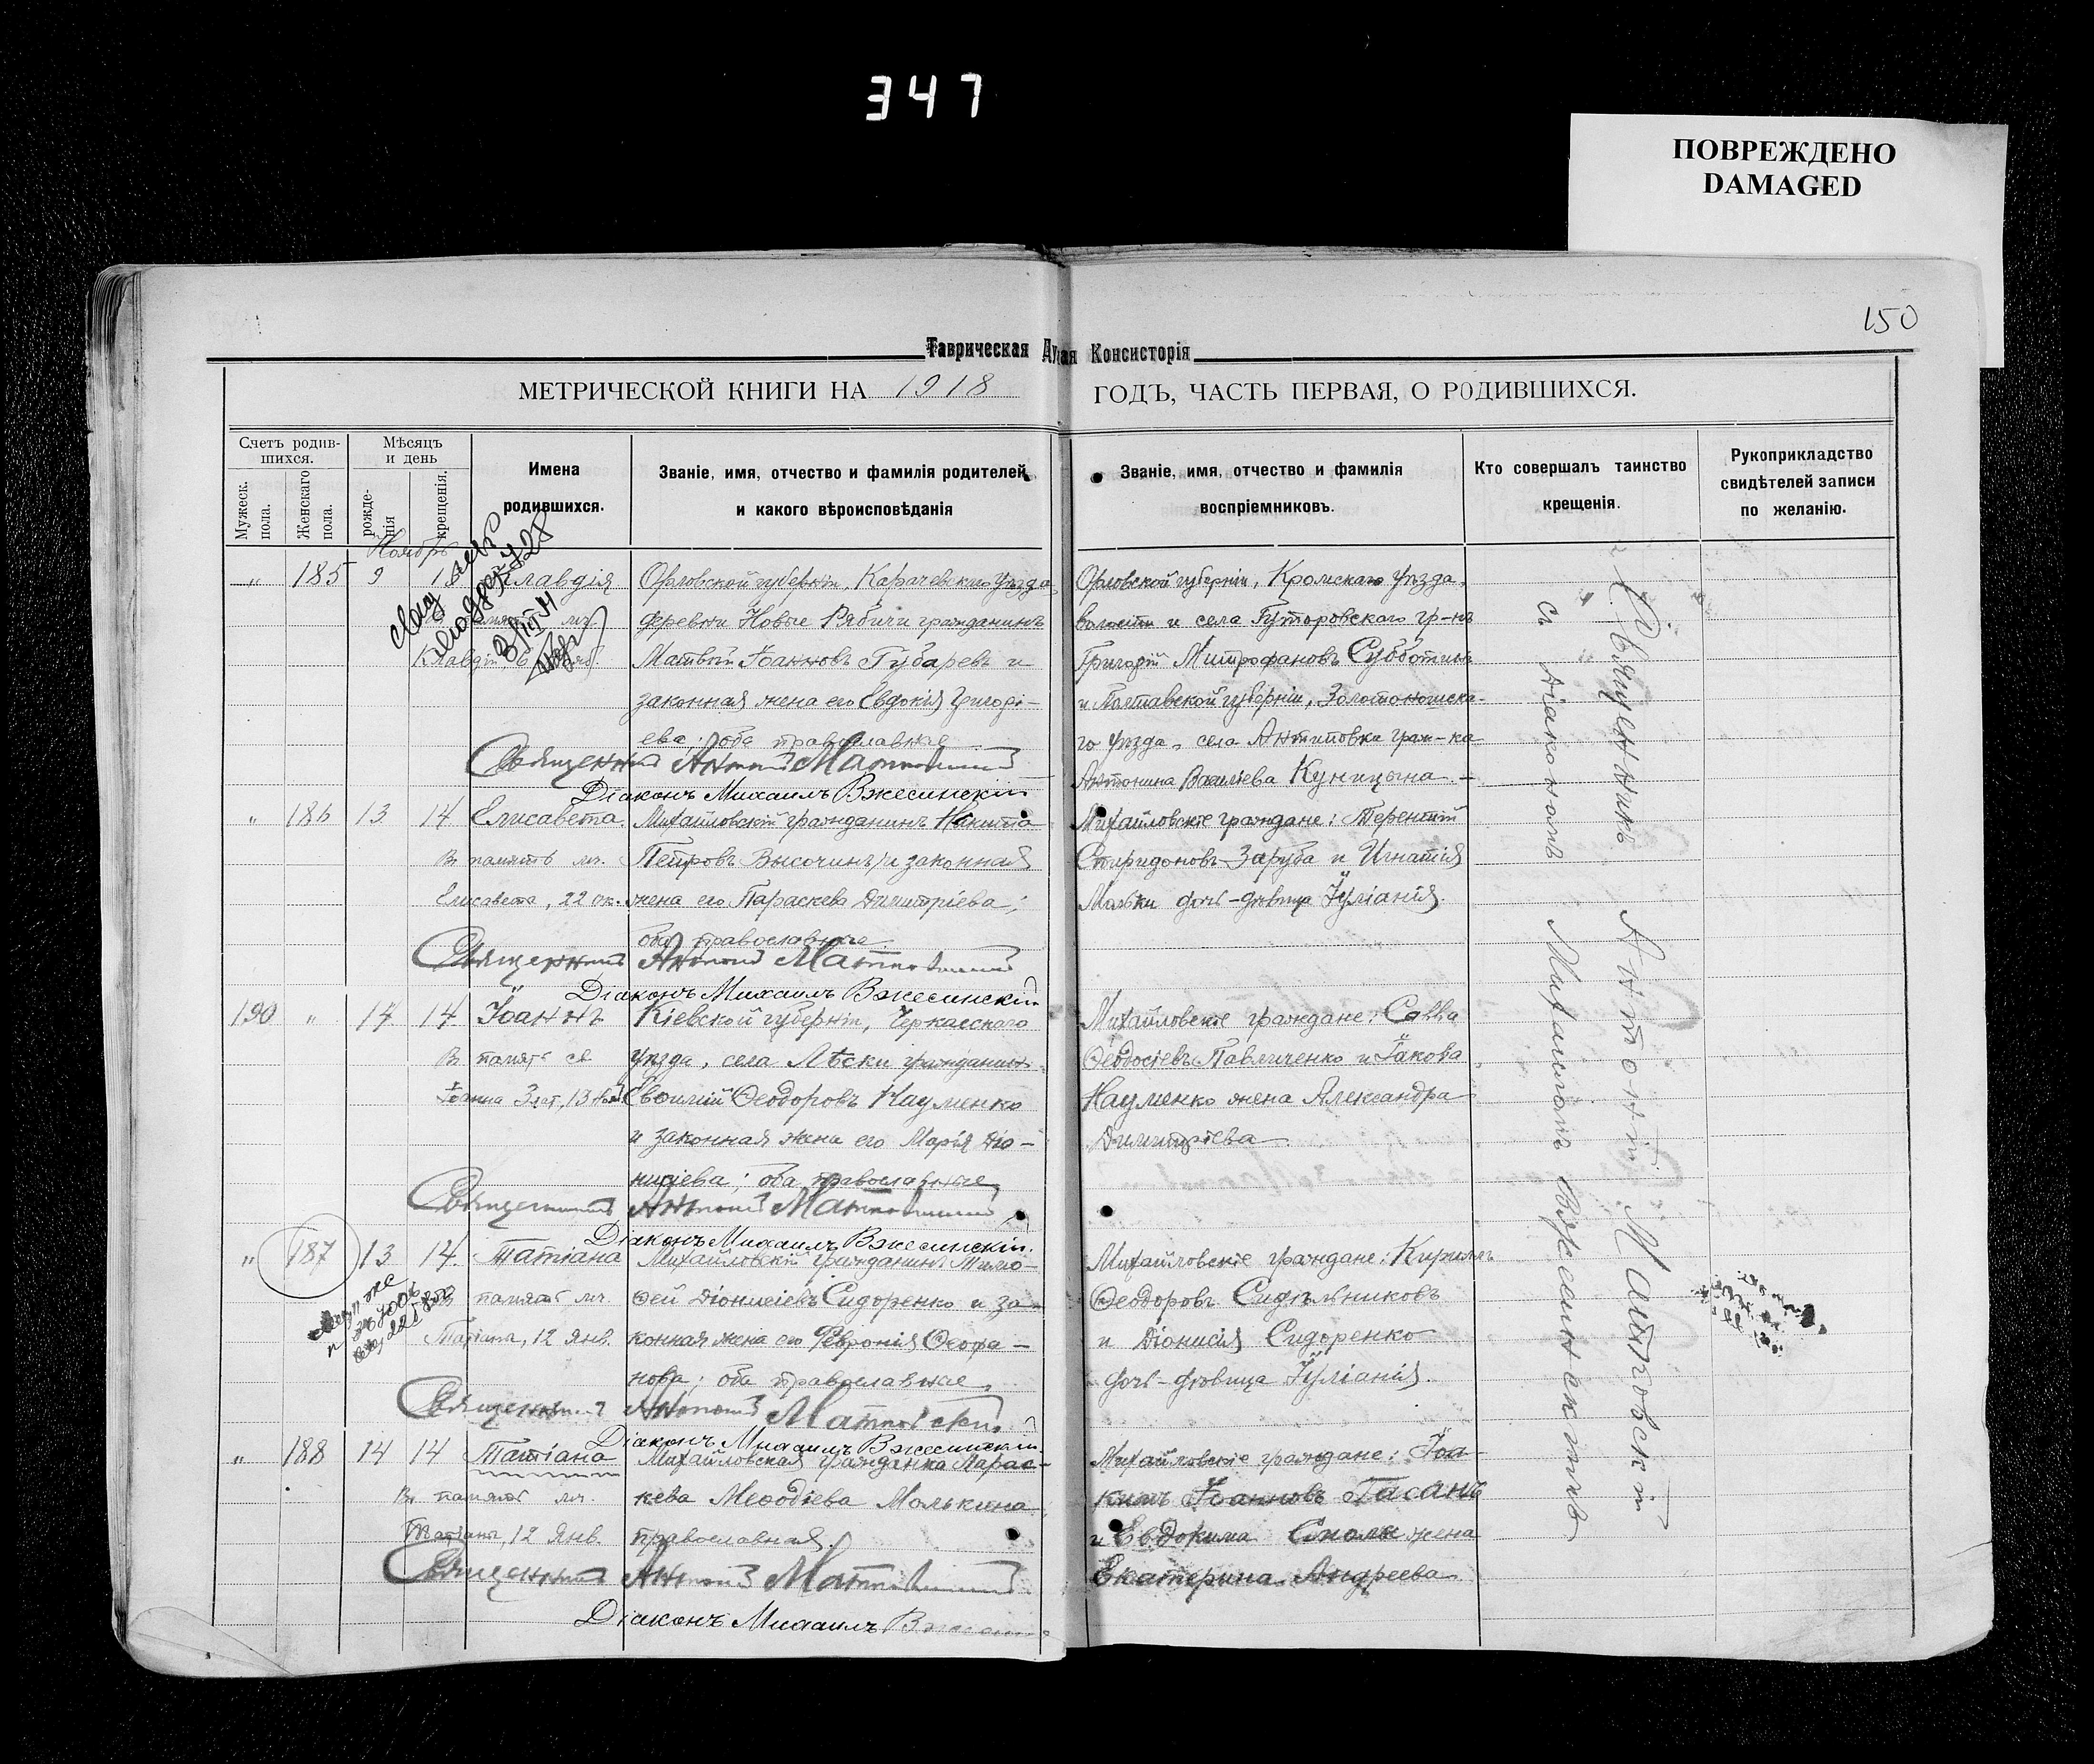 347
ПОВРЕЖДЕНО
DAMAGED
150
Таврическая Дух ая Консисторія
МЕТРИЧЕСКОЙ КНИГИ НА 1918 ГОДЪ, ЧАСТЬ ПЕРВАЯ, О РОДИВШИХСЯ.
Счетъ родив-
шихся.
Мужеск. пола.
Женскаго пола.
Мѣсяцъ
и день
рожде-
нія
крещенія.
Имена
родившихся.
Званіе, имя, отчество и фамилія родителей
и какого вѣроисповѣданія
Званіе, имя, отчество и фамилія
воспріемниковъ.
Кто совершалъ таинство
крещенія.
Рукоприкладство
свидѣтелей записи
по желанію.
Ноябрь
„ 185 9 13 Клавдія
Клавдіи 6
Орловской губерніи, Карачевскаго уѣзда,
деревни Новые Рябичи гражданинъ
Матвѣй Іоанновъ Губаревъ и
законная жена его Евдокія Григорі-
ева; оба православные
Священникъ Антоній Матковскій
Діаконъ Михаилъ Вжесинскій
Орловской губерніи, Кромскаго уѣзда,
волости и села Гуторовскаго гр-нъ
Григорій Митрофановъ Субботинъ
и Полтавской губерніи, Золотоношска-
го уѣзда, села Антиповка граж-ка
Антонина Васильева Куницына.
„ 186 13 14 Елисавета.
Въ память мч.
Елисаветы, 22 ок.
Михайловскій гражданинъ Никита
Петровъ Высочинъ и законная
жена его Параскева Димитріева;
оба православные
Священникъ Антоній Матковскій
Діаконъ Михаилъ Вжесинскій
Михайловскіе граждане: Терентій
Спиридоновъ Заруба и Игнатія
Мальки дочь-дѣвица Іуліанія.
190 „ 14 14 Іоаннъ
Въ память св.
Іоанна Злат., 13 Нояб.
Кіевской губерніи, Черкасскаго
уѣзда, села Лѣски гражданинъ
Евфимій Ѳеодоровъ Науменко
и законная жена его Марія Діо-
нисіева; оба православные
Священникъ Антоній Матковскій
Діаконъ Михаилъ Вжесинскій
Михайловскіе граждане: Савва
Ѳеодосіевъ Павличенко и Іакова
Науменко жена Александра
Димитріева
„ 187 13 14 Татіана
Въ память мч.
Татіаны, 12 Янв.
Михайловскій гражданинъ Тимо-
ѳей Діонисіевъ Сидоренко и за-
конная жена его Февронія Ѳеофа-
нова; оба православные.
Священникъ Антоній Матковскій
Діаконъ Михаилъ Вжесинскій.
Михайловскіе граждане: Кириллъ
Ѳеодоровъ Сидѣльниковъ
и Діонисія Сидоренко
дочь-дѣвица Іуліанія.
„ 188 14 14 Татіана
Въ память мч.
Татіаны, 12 Янв.
Михайловская гражданка Парас-
кева Меѳодіева Малькина
православная.
Священникъ Антоній Матковскій
Діаконъ Михаилъ
Михайловскіе граждане: Іоа-
кимъ Іоанновъ Гасанъ
и Евдокима Смолы жена
Екатерина Андреева
Священникъ Антоній Матковскій
съ діакономъ Михаиломъ Вжесинскимъ